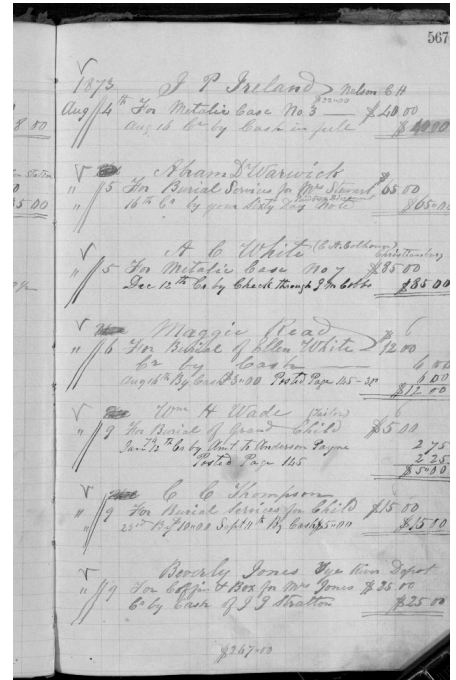 567
1873 J P Ireland Nelson C H
Aug 4th For Metalic Case No. 3 — $40.00
Aug 16 Cr by Cash in full $40.00
Abram D Warwick
" 5 For Burial Services for Mrs Stewart $65.00
16th Cr by your Sixty Day Note $65.00
A C White (C. A. Colhoun) Christiansburg
" 5 For Metalic Case No 7 $85.00
Dec 12th Cr by Check through J M Cobbs $85.00
Maggie Read
" 6 For Burial of Ellen White $12.00
Cr by Cash — 6 00
Aug 16th By Cash $3.00 Posted Page 145 - 6 00
$12 00
Wm H Wade
" 9 For Burial of Grand Child $5.00
12th Cr by Amt to Anderson Payne 2 75
Posted Page 145 2 25
$5.00
C C Thompson
" 9 For Burial Services for Child $15.00
22nd By $10.00 Sept 11th By Cash $5.00 $15.00
Beverly Jones Tye River Depot
" 9 For Coffin & Box for Mrs Jones $25.00
Cr by Cash of J J Stratton $25.00
$247.00